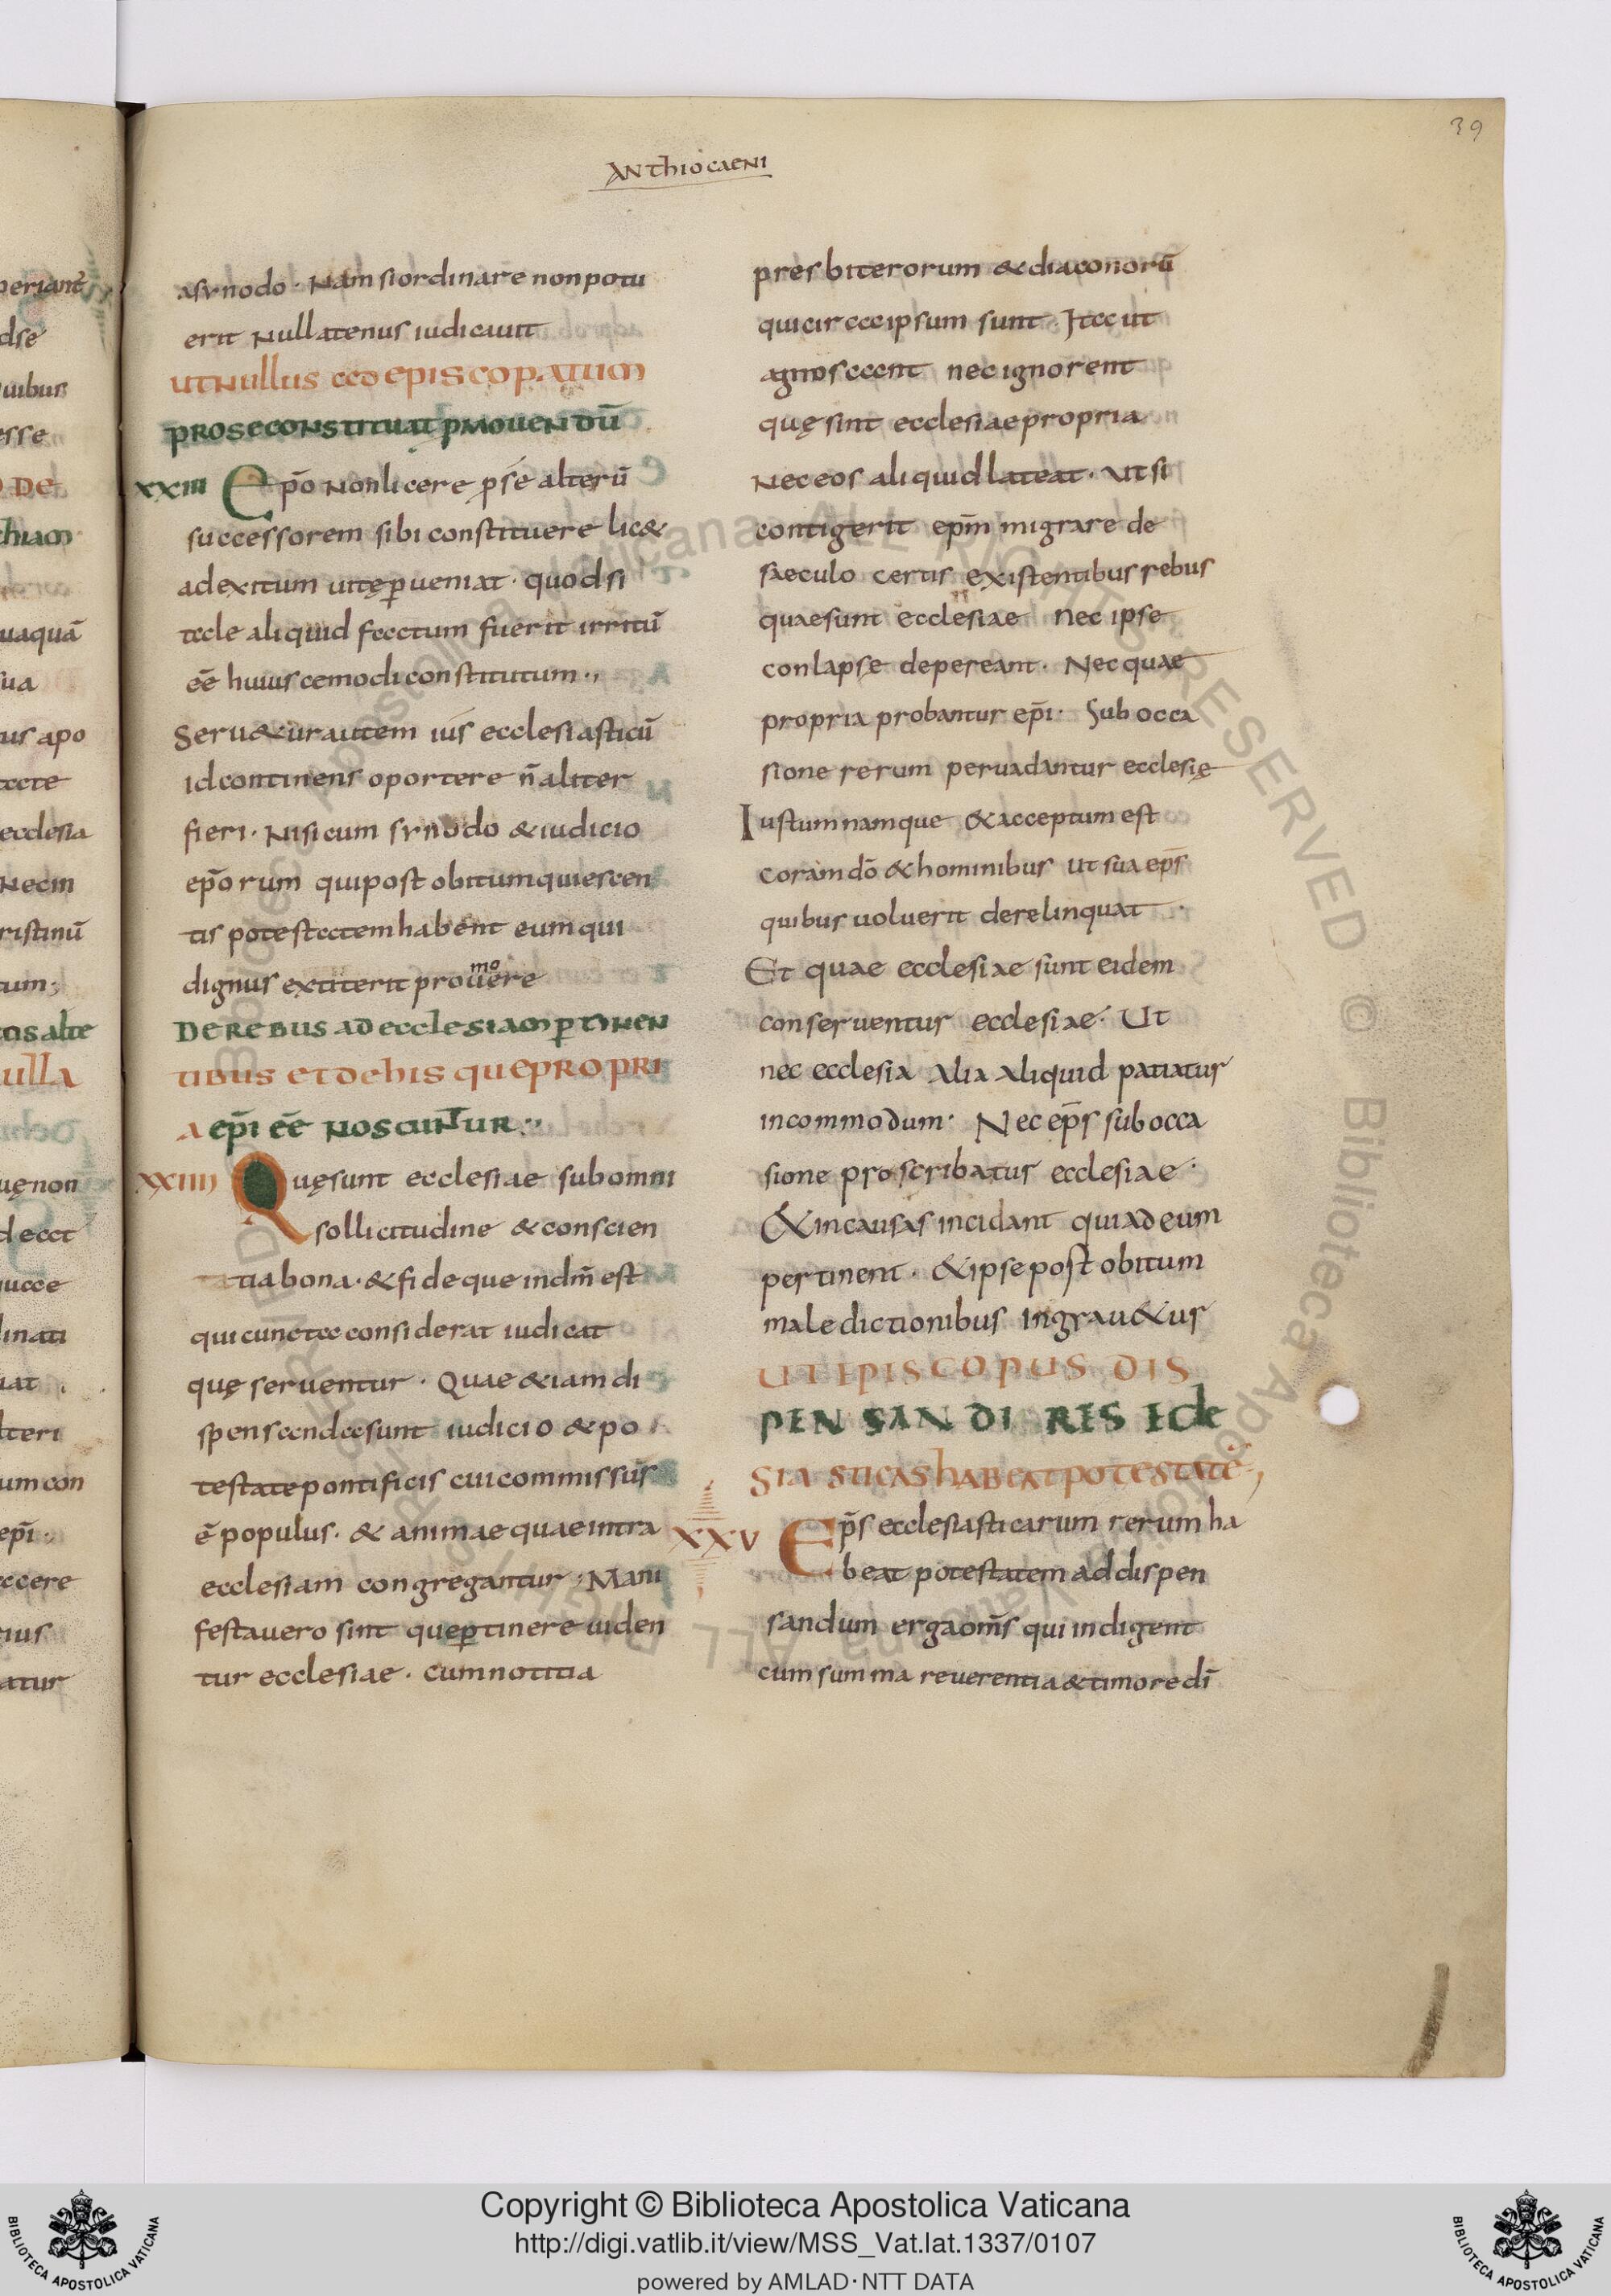 39
ANthiocaeni
asynodo · Nam siordinare nonpotu
erit Nullatenus iudicauit
utNullus ad episcopatum
proseconstituat pmouendū
xxiii Epō Nonlicere pse alterū
successorem sibi constituere lic&
adexitum uitę pueniat · quodsi
tale aliquid factum fuerit irritū
eē huiuscemodi constitutum ·,
Seru&ur autem ius ecclesiasticū
id continens oportere n̄ aliter
fieri · Nisi cum synodo & iudicio
epōrum qui post obitum quiescen
tis potestatem habent eum qui
dignus extiterit promouere
De rebus ad ecclesiam ptinen
tibus et de his que propri
a epī eē noscuntur ·,
xxiiii Quę sunt ecclesiae sub omni
sollicitudine & conscien
tia bona · & fide que indm̄ est
qui cuncta considerat iudicat
quę seruentur · Quae &iam di
spensanda sunt iudicio & po
testate pontificis cui commissus
ē populus · & animae quae intra
ecclesiam congregantur ; Mani
festa uero sint que ptinere uiden
tur ecclesiae · cum notitia
presbiterorum & diaconorū
qui circa ipsum sunt · Ita ut
agnoscant nec ignorent
quę sint ecclesiae propria
Nec eos aliquid lateat · ut si
contigerit epm̄ migrare de
saeculo certis existentibus rebus
quae sunt ecclesiae nec ipse
conlapse depereant · Nec quae
propria probantur epī · Sub occa
sione rerum peruadantur ecclesię
Iustum namque & acceptum est
coram dō & hominibus ut sua ep̄s
quibus uoluerit derelinquat ·
Et quae ecclesiae sunt eidem
conseruentur ecclesiae · Ut
nec ecclesia alia aliquid patiatur
incommodum · Nec ep̄s sub occa
sione proscribatur ecclesiae ·
& in causas incidant qui ad eum
pertinent · & ipse post obitum
maledictionibus ingrau&ur
Ut episcopus dis
pensandi res ecle
siasticas habeat potestatē ·,
xxv Ep̄s ecclesiasticarum rerum ha
beat potestatem ad dispen
sandum erga om̄s qui indigent
cum summa reuerentia & timore dī
Copyright © Biblioteca Apostolica Vaticana
http://digi.vatlib.it/view/MSS_Vat.lat.1337/0107
powered by AMLAD·NTT DATA